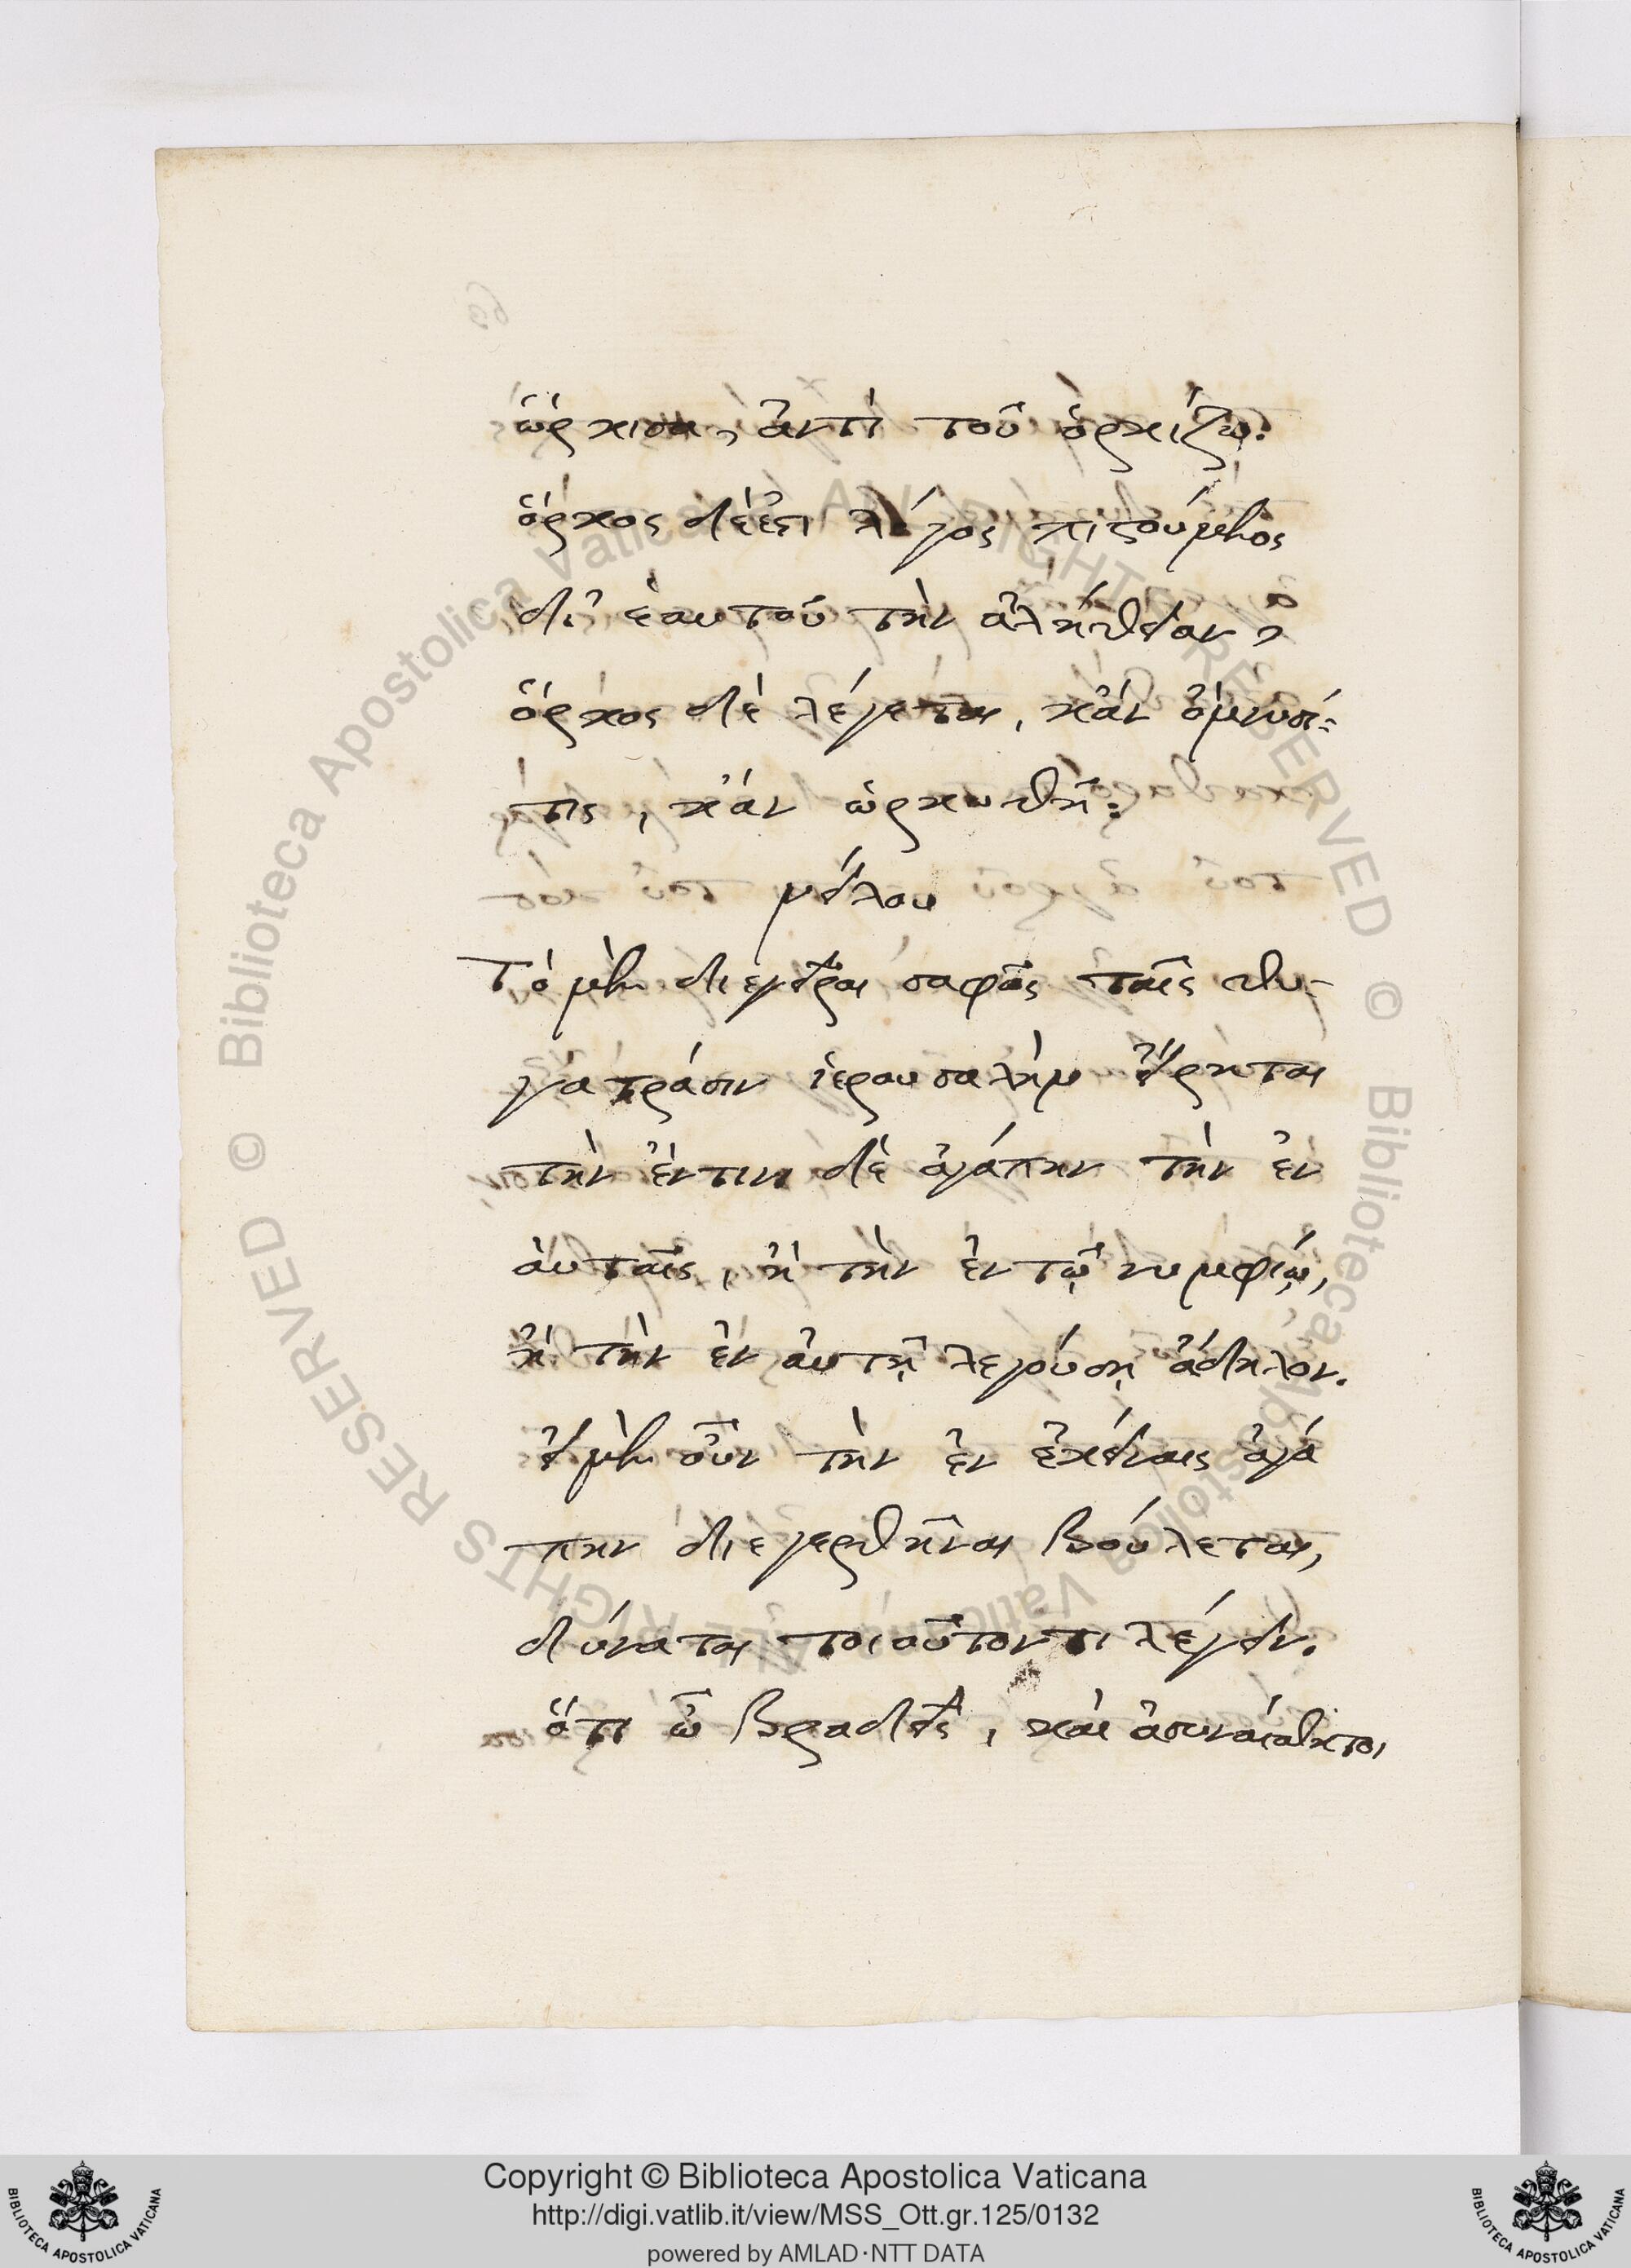 ὥρκισα, ἀντὶ τοῦ ὁρκίζω.
ὅρκος δέ ἐστι λόγος πιστούμενος
δι' ἑαυτοῦ τὴν ἀλήθειαν,
ὅρκος δὲ λέγεται, κἂν ὀμνυσί-
τις, κἂν ὁρκωθῆ:
νείλου
Τὸ μὲν διεγεῖραι σαφῶς ταῖς θυ-
γατράσιν ἱερουσαλὴμ εἴρηται
τὴν ἔντινι δὲ ἀγάπην τὴν ἐν
ἀυταῖς, ἢ τὴν ἐν τῷ νυμφίῳ,
ἢ τὴν ἐν ἀυτῇ λεγούσῃ ἄδηλον.
εἰ μὲν οὖν τὴν ἐν ἐκείναις ἀγά
πην διεγερθῆναι βούλεται,
δύναται τοιοῦτον τι λέγειν.
ὅτι ὦ βραδεῖς, καὶ ἀσυναίσθητοι
Copyright © Biblioteca Apostolica Vaticana
http://digi.vatlib.it/view/MSS_Ott.gr.125/0132
powered by AMLAD·NTT DATA
BIBLIOTECA APOSTOLICA VATICANA
BIBLIOTECA APOSTOLICA VATICANA
© Biblioteca Apostolica Vaticana ALL RIGHTS RESERVED © Biblioteca Apostolica Vaticana ALL RIGHTS RESERVED